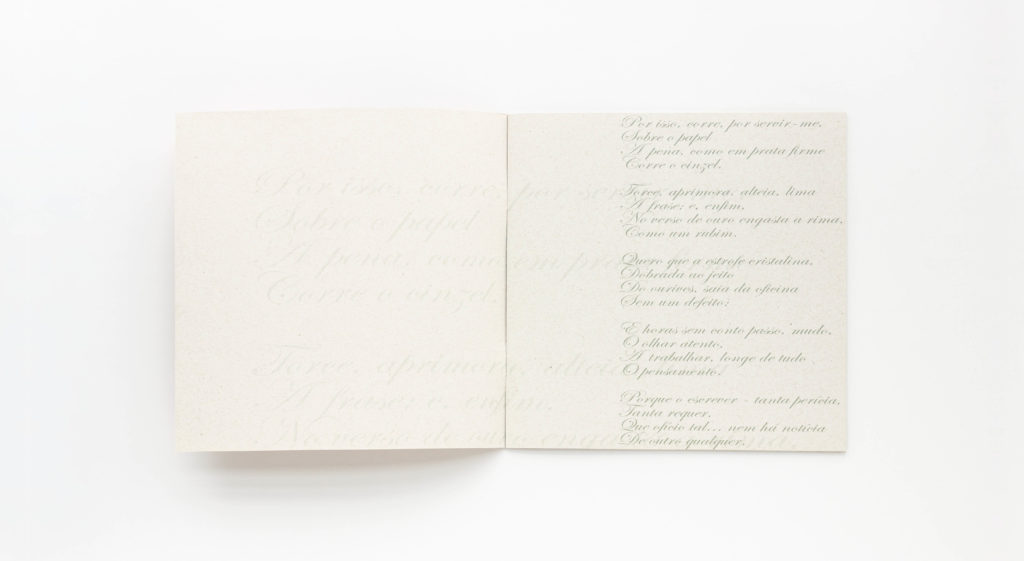 Por isso, corre, por servir-me,
Sobre o papel
A pena, como em prata firme
Corre o cinzel.

Torce, aprimora, alteia, lima
A frase; e, enfim,
No verso de ouro engasta a rima,
Como um rubim.

Quero que a estrofe cristalina,
Dobrada ao jeito
Do ourives, saia da oficina
Sem um defeito:

E horas sem conto passo, mudo,
O olhar atento,
A trabalhar, longe de tudo
O pensamento.

Porque o escrever - tanta perícia,
Tanta requer,
Que ofício tal... nem há notícia
De outro qualquer.

Por isso, corre, por ser
Sobre o papel
A pena, como em pra
Corre o cinzel.

Torce, aprimora, alteia
A frase; e, enfim,
No verso de ouro enga